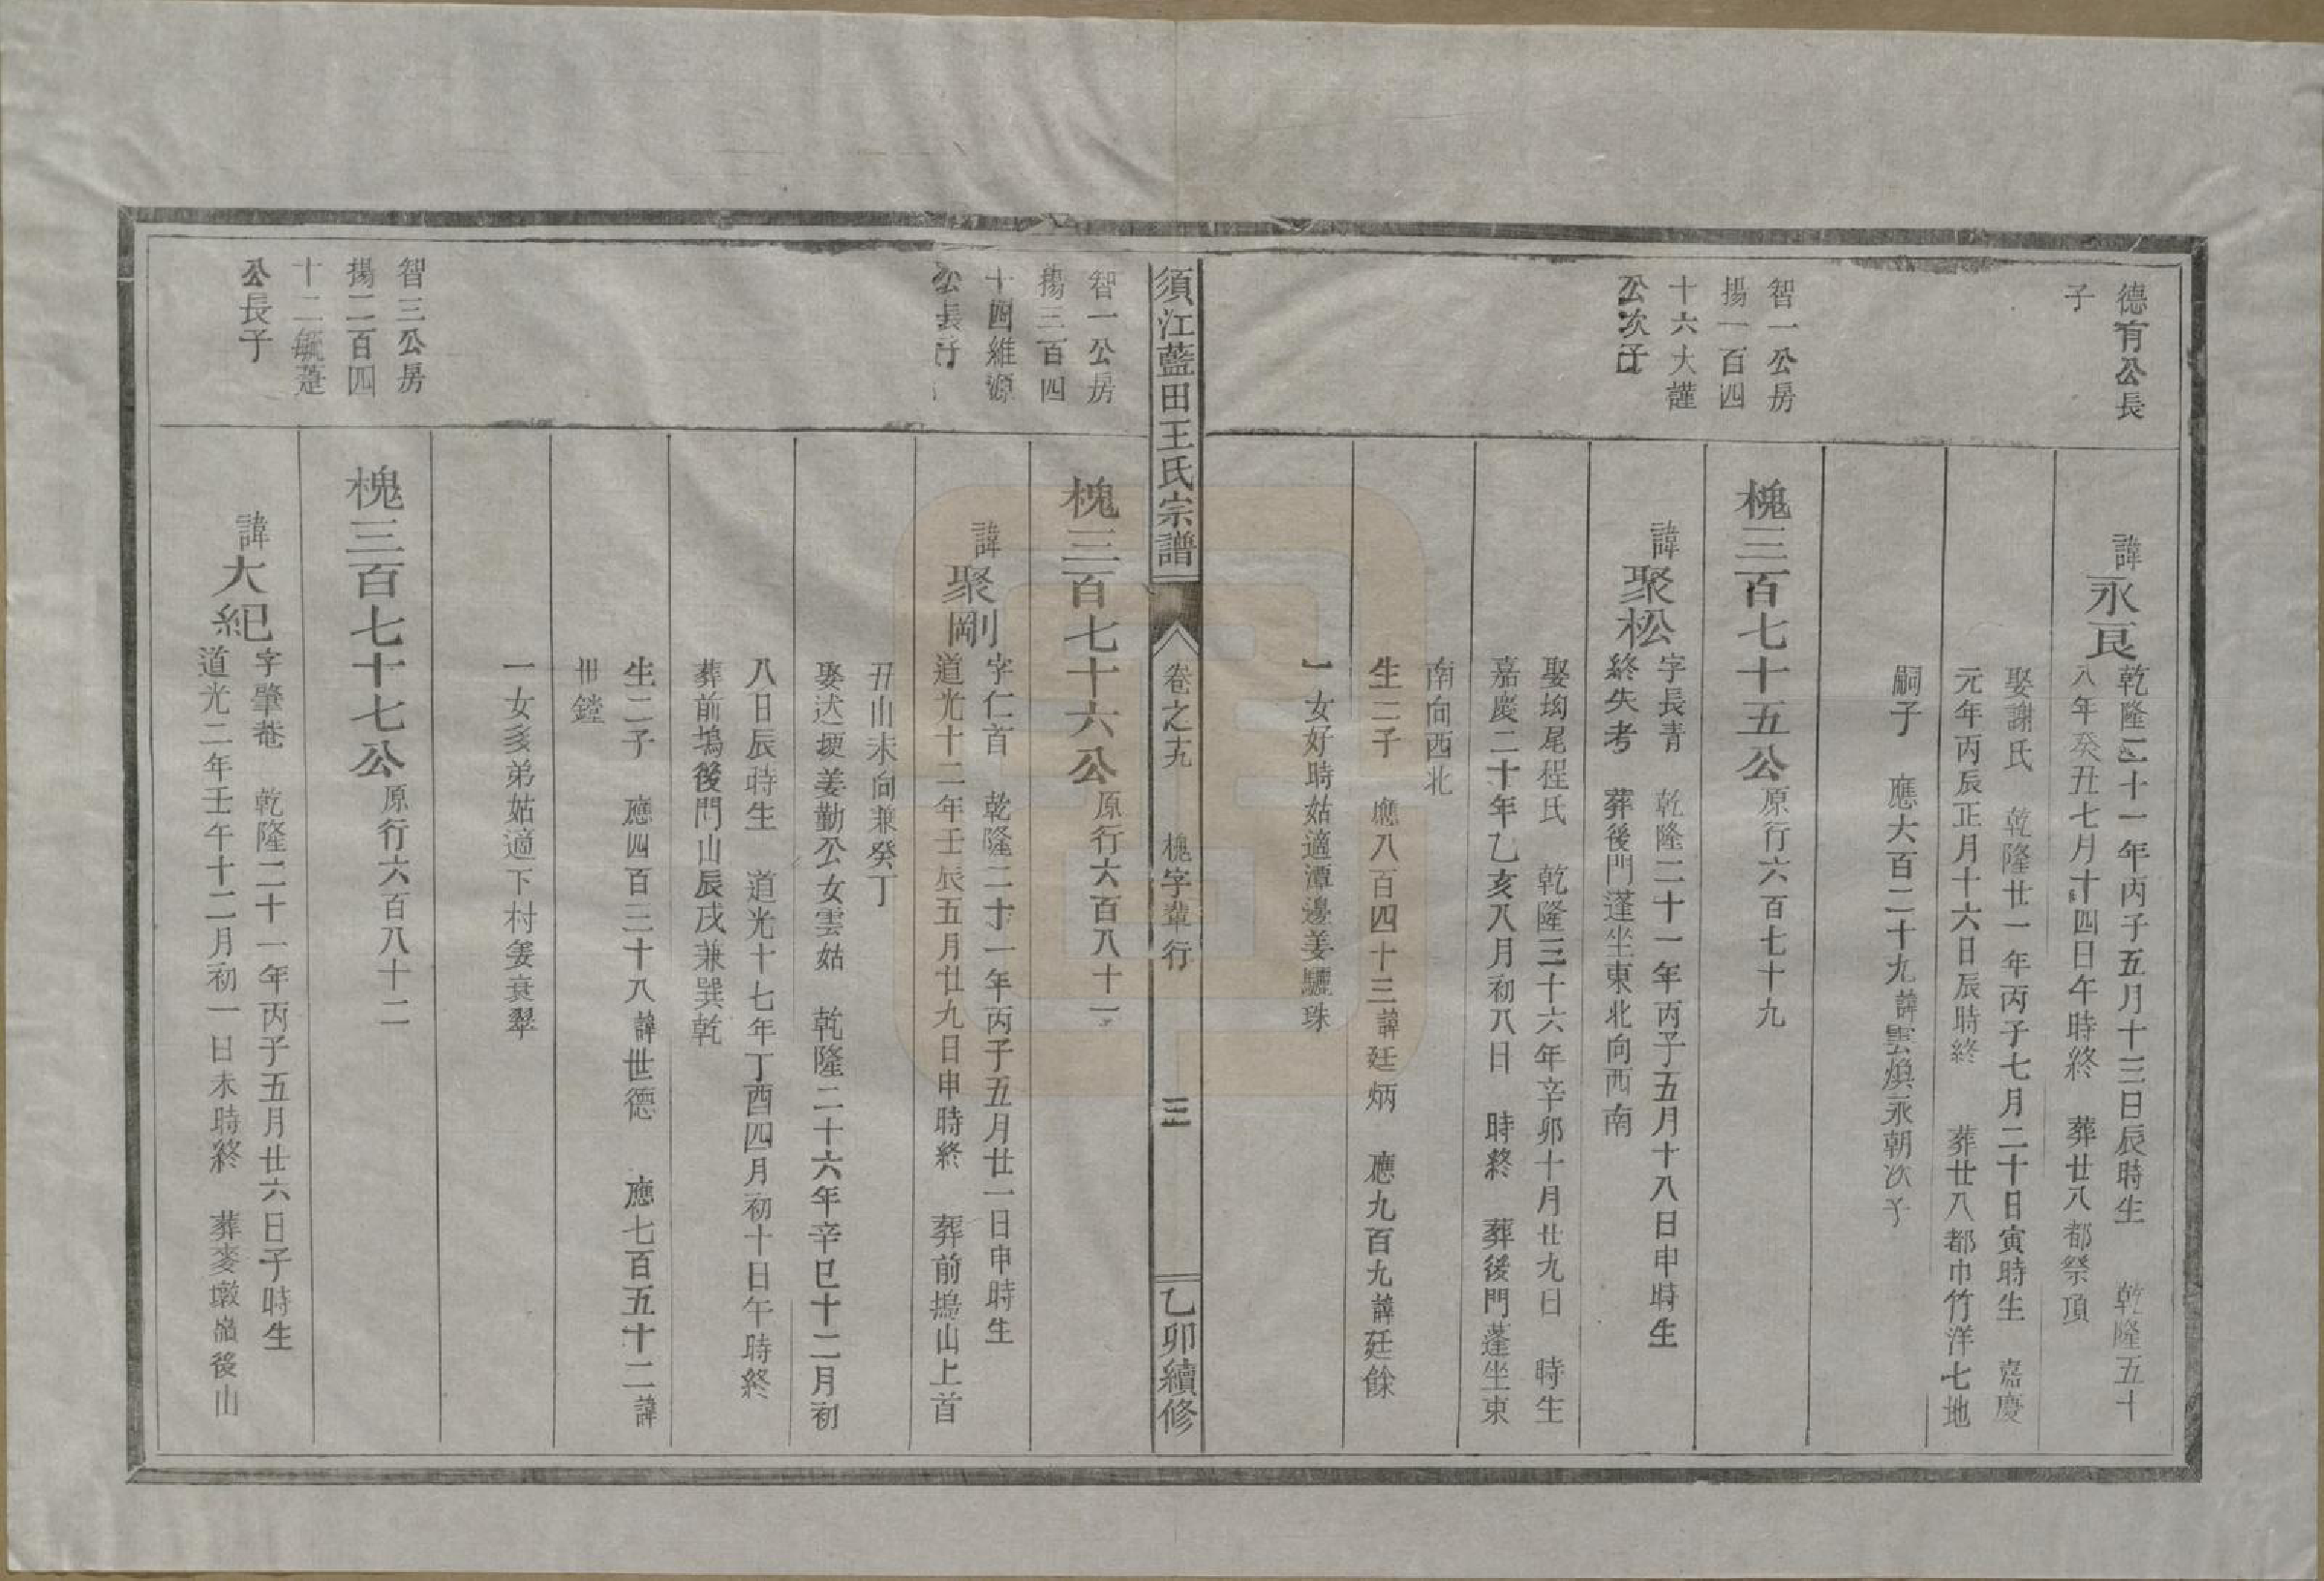 德有公長
子
諱永良
乾隆二十一年丙子五月十三日辰時生 乾隆五十
八年癸丑七月十四日午時終 葬廿八都祭頂
娶謝氏 乾隆廿一年丙子七月二十日寅時生 嘉慶
元年丙辰正月十六日辰時終 葬廿八都巾竹洋七地
嗣子 應大百二十九諱雲煥永朝次子
智一公房
揚一百四
十六大謹
公次子
槐三百七十五公原行六百七十九
諱聚松
字長青 乾隆二十一年丙子五月十八日申時生
終失考 葬後門蓬坐東北向西南
娶坳尾程氏 乾隆三十六年辛卯十月廿九日 時生
嘉慶二十年乙亥八月初八日 時終 葬後門蓬坐東
南向西北
生二子 應八百四十三諱廷炳 應九百九諱廷餘
一女好時姑適潭邊姜驪珠
須江藍田王氏宗譜
卷之十九 槐字輩行 三 乙卯續修
智一公房
揚三百四
十四維源
公長子
槐三百七十六公原行六百八十一
諱聚剛
字仁首 乾隆二十一年丙子五月廿一日申時生
道光十二年壬辰五月廿九日申時終 葬前塢山上首
丑山未向兼癸丁
娶达埂姜勤公女雲姑 乾隆二十六年辛巳十二月初
八日辰時生 道光十七年丁酉四月初十日午時終
葬前塢後門山辰戌兼巽乾
生二子 應四百三十八諱世德 應七百五十二諱
卌鏜
一女多弟姑適下村姜袞翠
智三公房
揚二百四
十二毓蓮
公長子
槐三百七十七公原行六百八十二
諱大紀
字肇菴 乾隆二十一年丙子五月廿六日子時生
道光二年壬午十二月初一日未時終 葬麥墩嶺後山